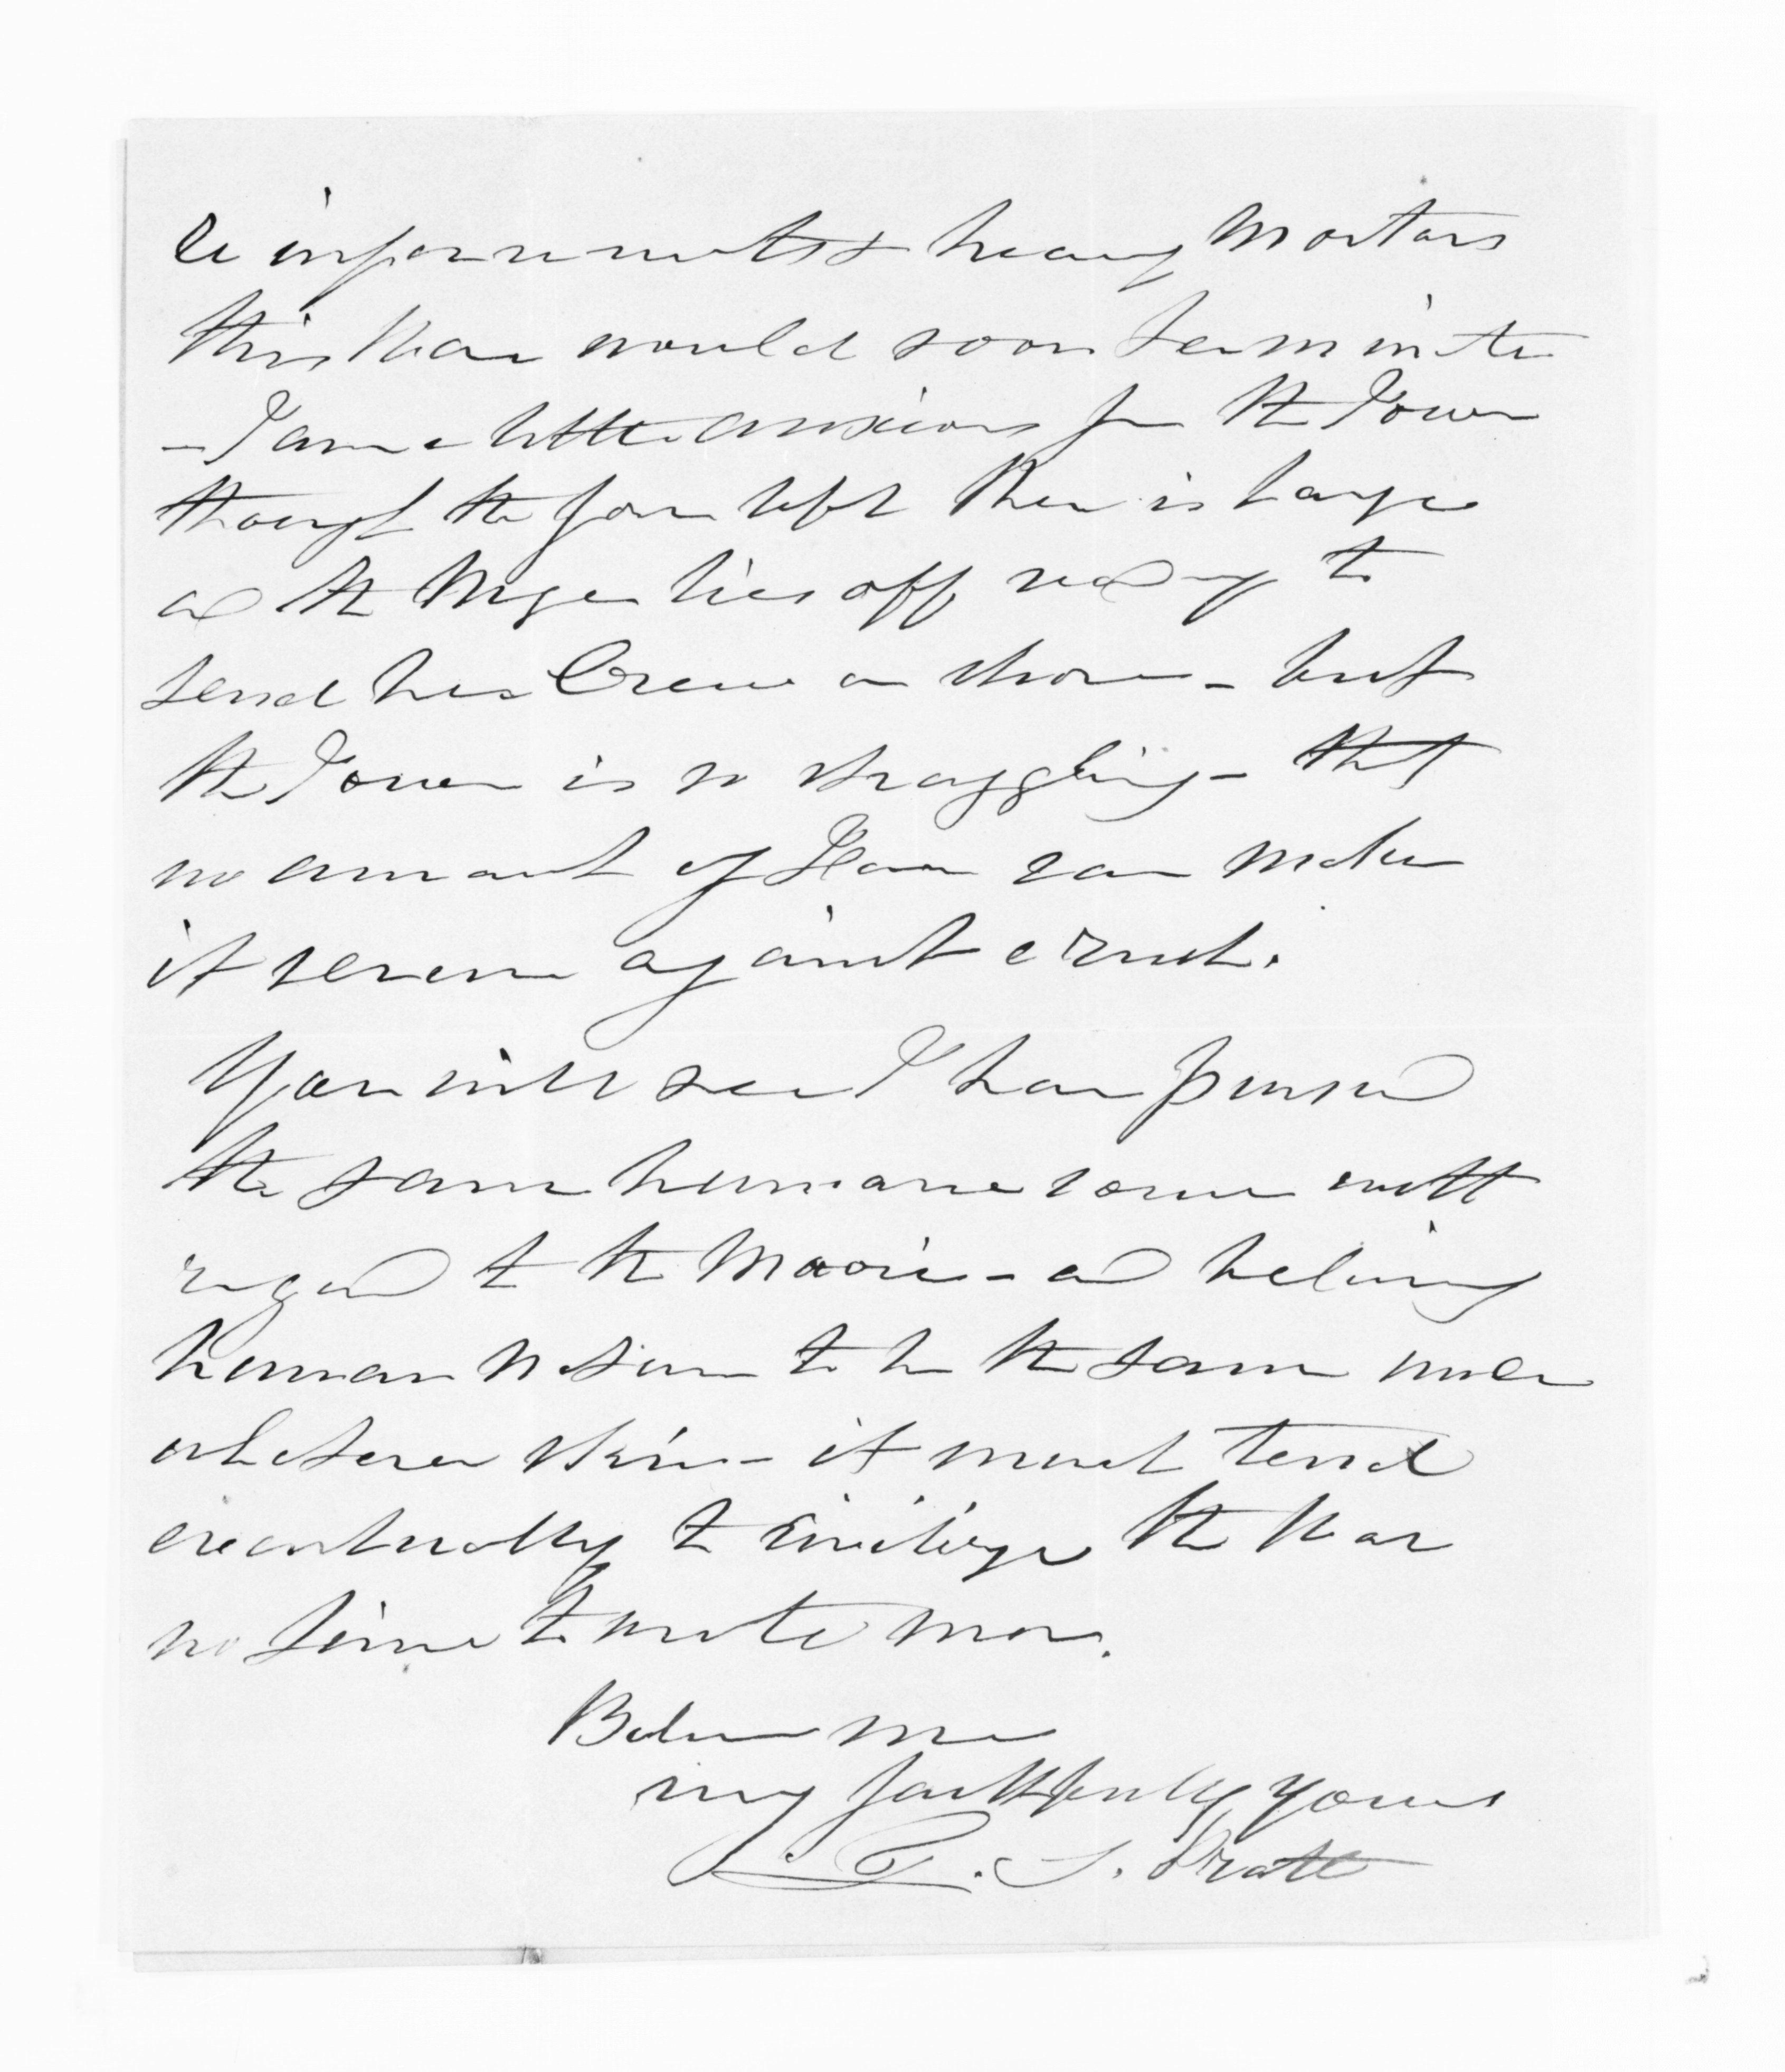 Reinforcements & heavy Mortars
this War would soon terminate
- I am a little anxious for the Town
though the force left there is large
and the Niger lies off ready to
send her Crew on shore - but
the Town is so straggling - that
no amount of Force can make
it secure against a rush.
You will see I have pursued
the same humane course with
regard to the Maories - and believing
human nature to be the same under
whatever skin - it must tend
eventually to civilize the War
no time to write more.
Believe me
very faithfully yours
T. S. Pratt